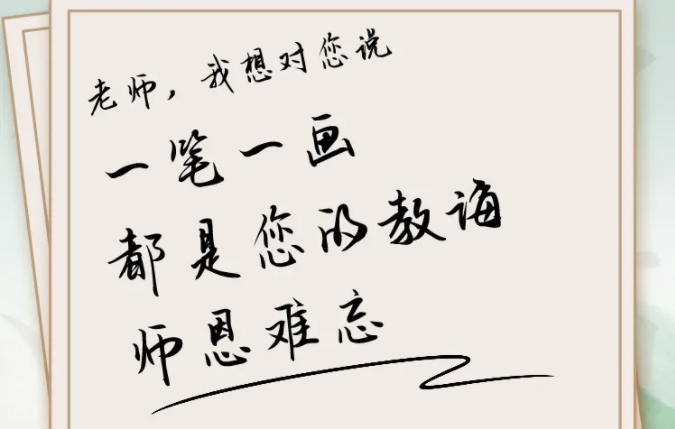 老师，我想对您说
一笔一画
都是您的教诲
师恩难忘